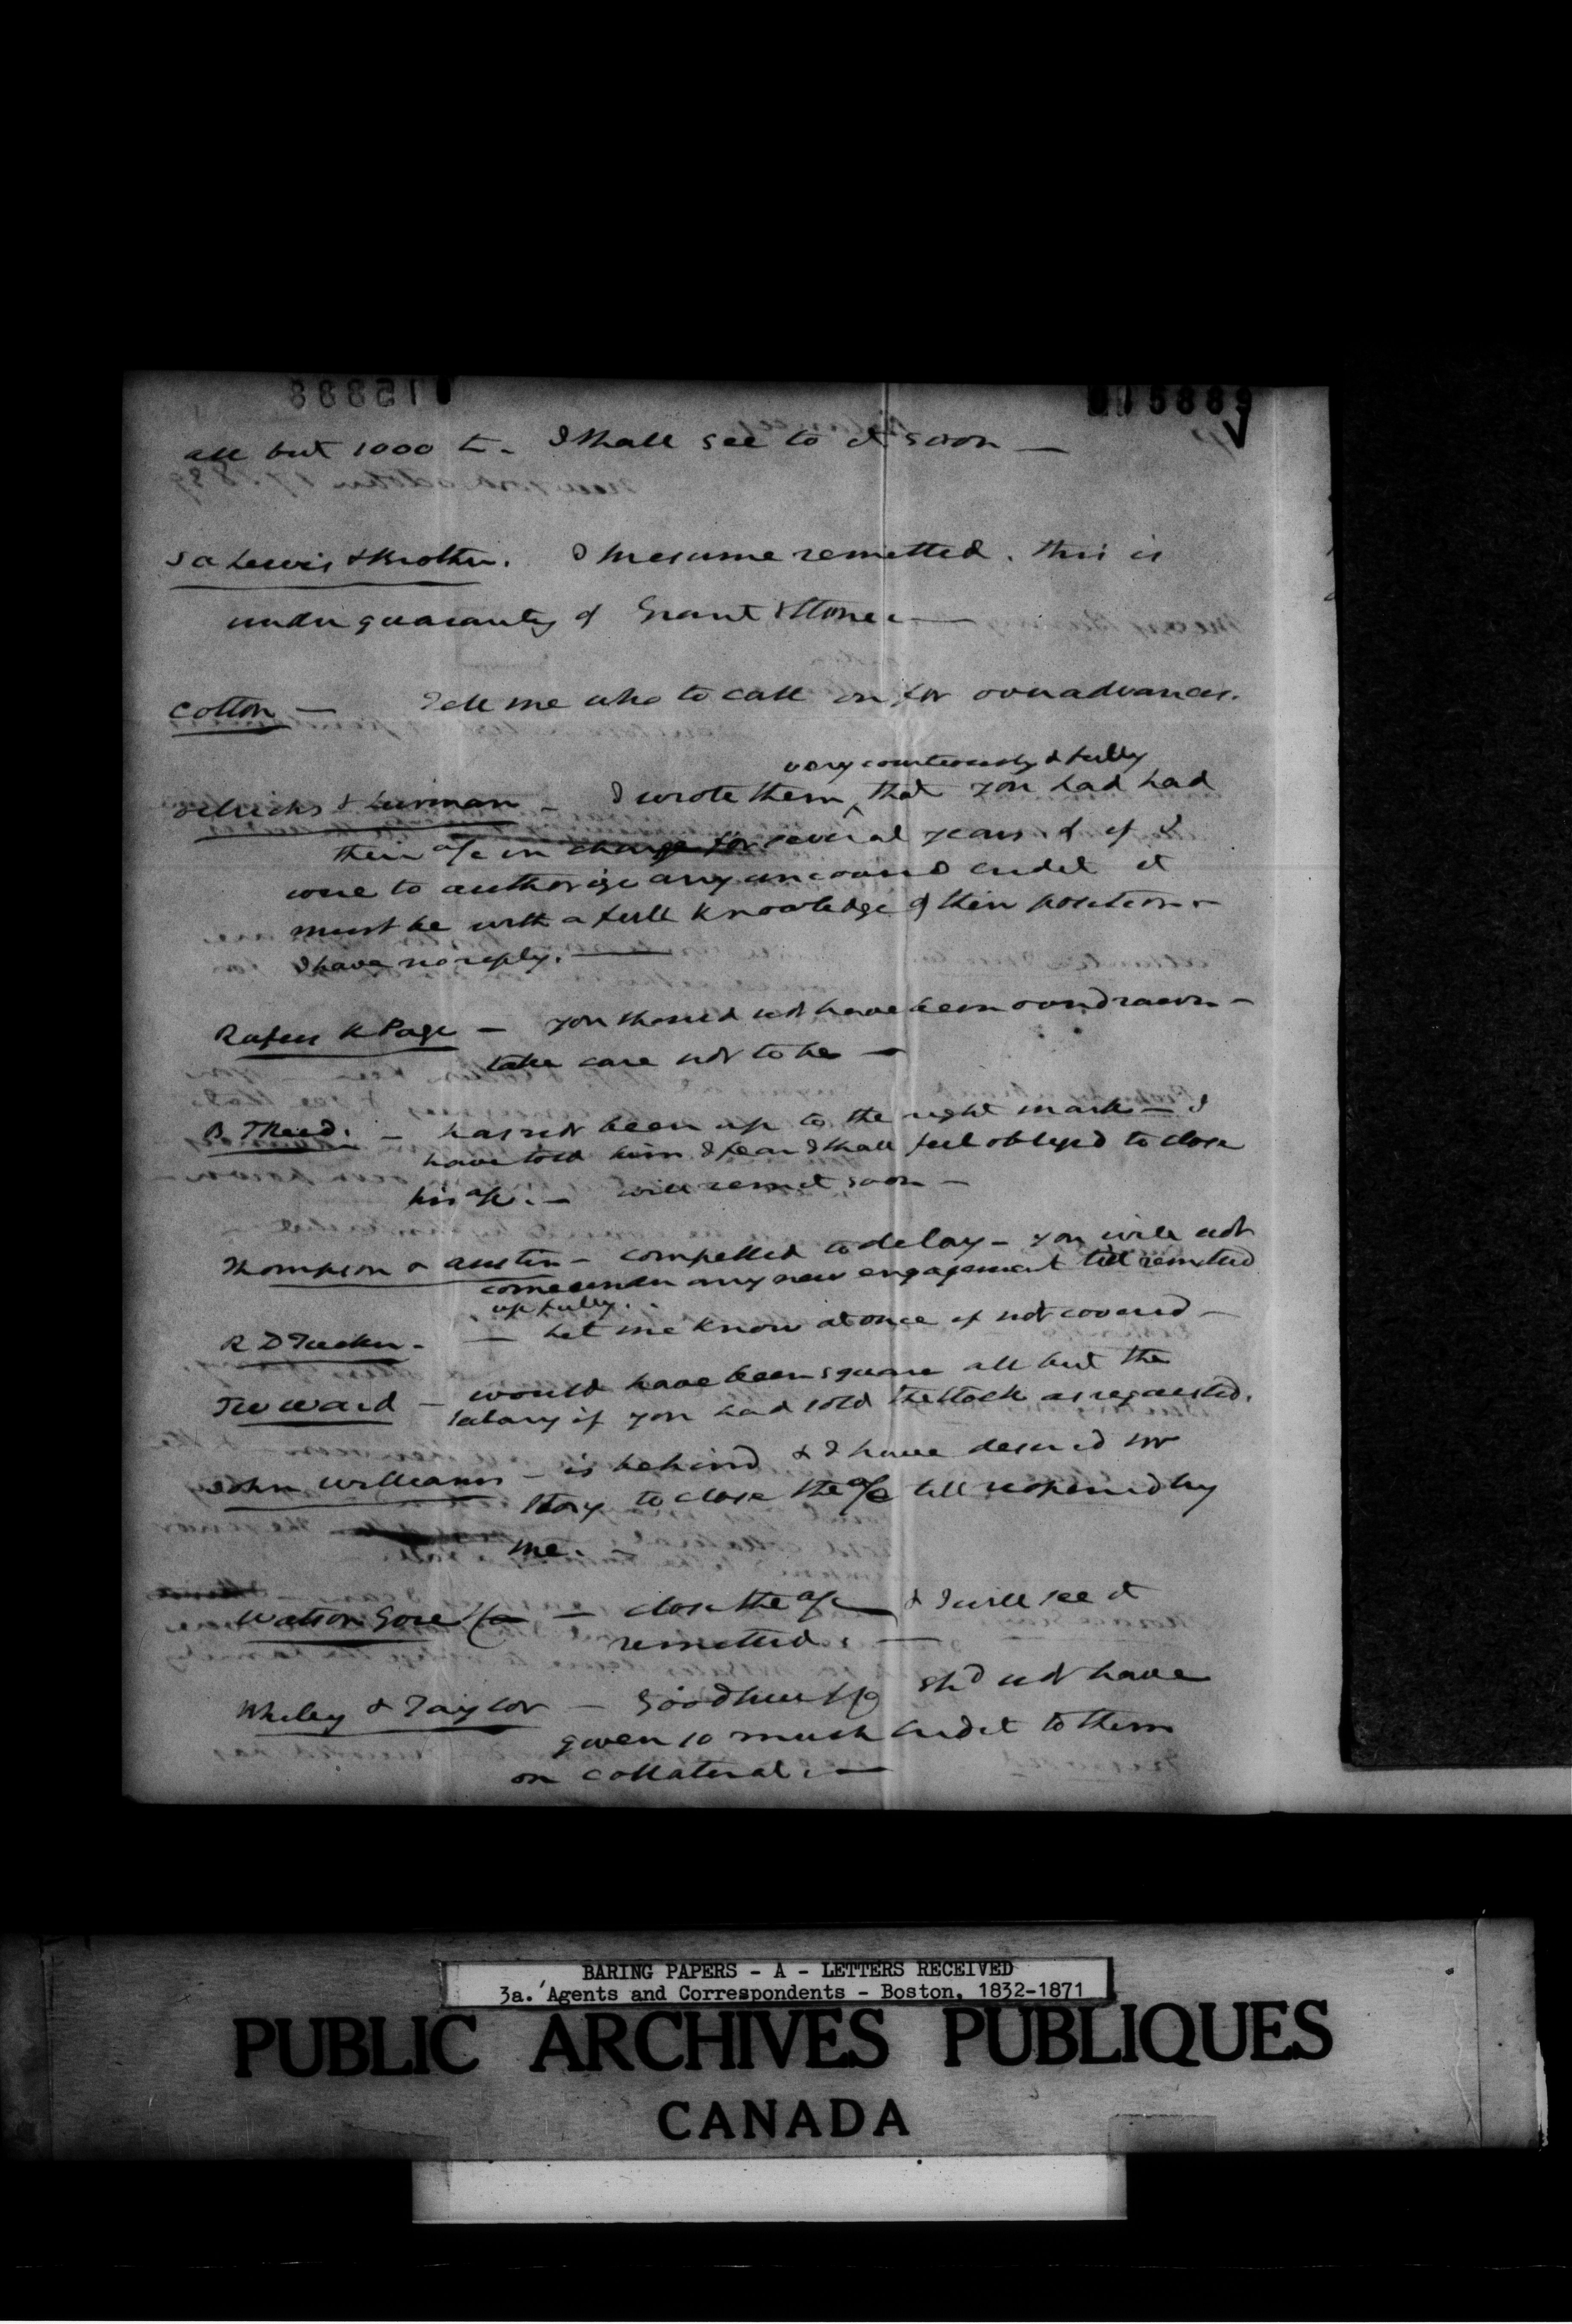 015889
all but 1000 £. I shall see to it soon —
S a Lewis & Brother. I presume remitted. this is
under guaranty of Grant & Stone. —
Cotton — Tell me who to call on for overadvances.
very courteously & fully
Oelrichs & Lurman — I wrote them that you had had
their a/c in charge for several years & if I
were to authorize any uncovered credit it
must be with a full knowledge of their position —
I have no reply. —
Rufus K Page — you should not have been overdrawn —
take care not to be —
B T Reed. — has not been up to the right mark — I
have told him I fear I shall feel obliged to close
his a/c. — will remit soon —
Thompson & Austin — compelled to delay — you will not
come under any new engagement till remitted
up fully.
R D Tucker. — Let me know at once if not covered —
T W Ward — would have been square all but the
salary if you had sold the stock as requested.
John Williams — is behind & I have desired Mr
Story to close the a/c till reopened by
me. —
Watson Gore & Co — close the a/c & I will see it
remitted. —
Whiley & Taylor — Goodhue & Co shd not have
given so much credit to them
on collateral. —
BARING PAPERS - A - LETTERS RECEIVED
3a. Agents and Correspondents - Boston, 1832-1871
PUBLIC ARCHIVES PUBLIQUES
CANADA